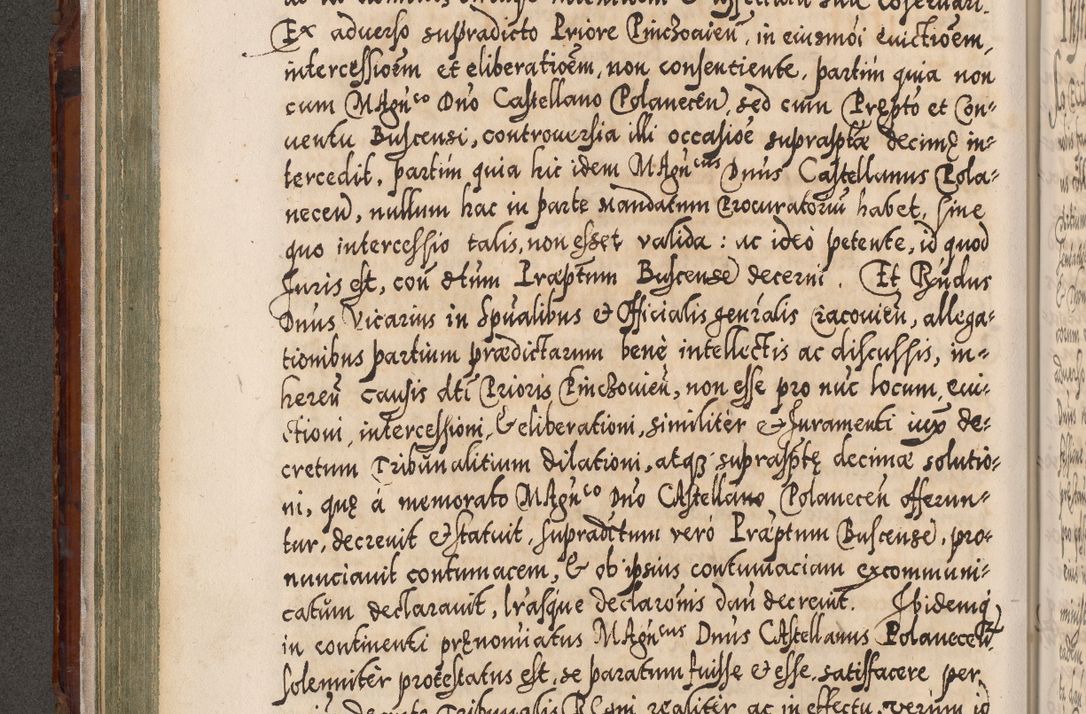 Ex adverso supradicto Priore Pinczovieñ, in eiusmõi evictioẽm,
intercessioẽm et eliberatioẽm, non consentiente, partim quia non
cum MAgñco Dño Castellano Polanecen̄, sed cum Prępto et Con-
ventu Buscensi, controversia illi occasioẽ suprasptæ decimę in-
tercedit, partim quia hic idem MAgñcus Dñus Castellanus Pola-
necen̄, nullum hac in parte Mandatum Procuratoriũ habet, sine
quo intercessio talis, non esset valida : ac ideò petente, id quod
Juris est, coñ dtum Præptum Buscense decerni . Et Rñdus
Dñus Vicarius in Spũalibus & Officialis genr̃alis Cracovieñ, allega-
tionibus partium prædictarum benè intellectis ac discussis, in-
hereñ causis dti Prioris Pinczovieñ, non esse pro nũc locum, evi-
ctioni, intercessioni, & eliberationi, similitèr & Juramenti iuxᵃ de-
cretum Tribunalitium dilationi, atqȝ supraspte decimæ solutio-
ni, quę à memorato MAgñco Dño CAstellano Polaneceñ offerun-
tur, decrevit & statuit, supradictum verò Præptum Buscense, pro-
nunciavit contumacem, & ob ipsius contumaciam excommuni-
catum declaravit, lrasque declaronis dan̄ decrevit. Ibidemq̃
in continenti pręnomiatus MAgñcus Dñus CAstellanus Polaneceñ.
solemnitèr protestatus est, se paratum fuisse & esse, satisfacere per